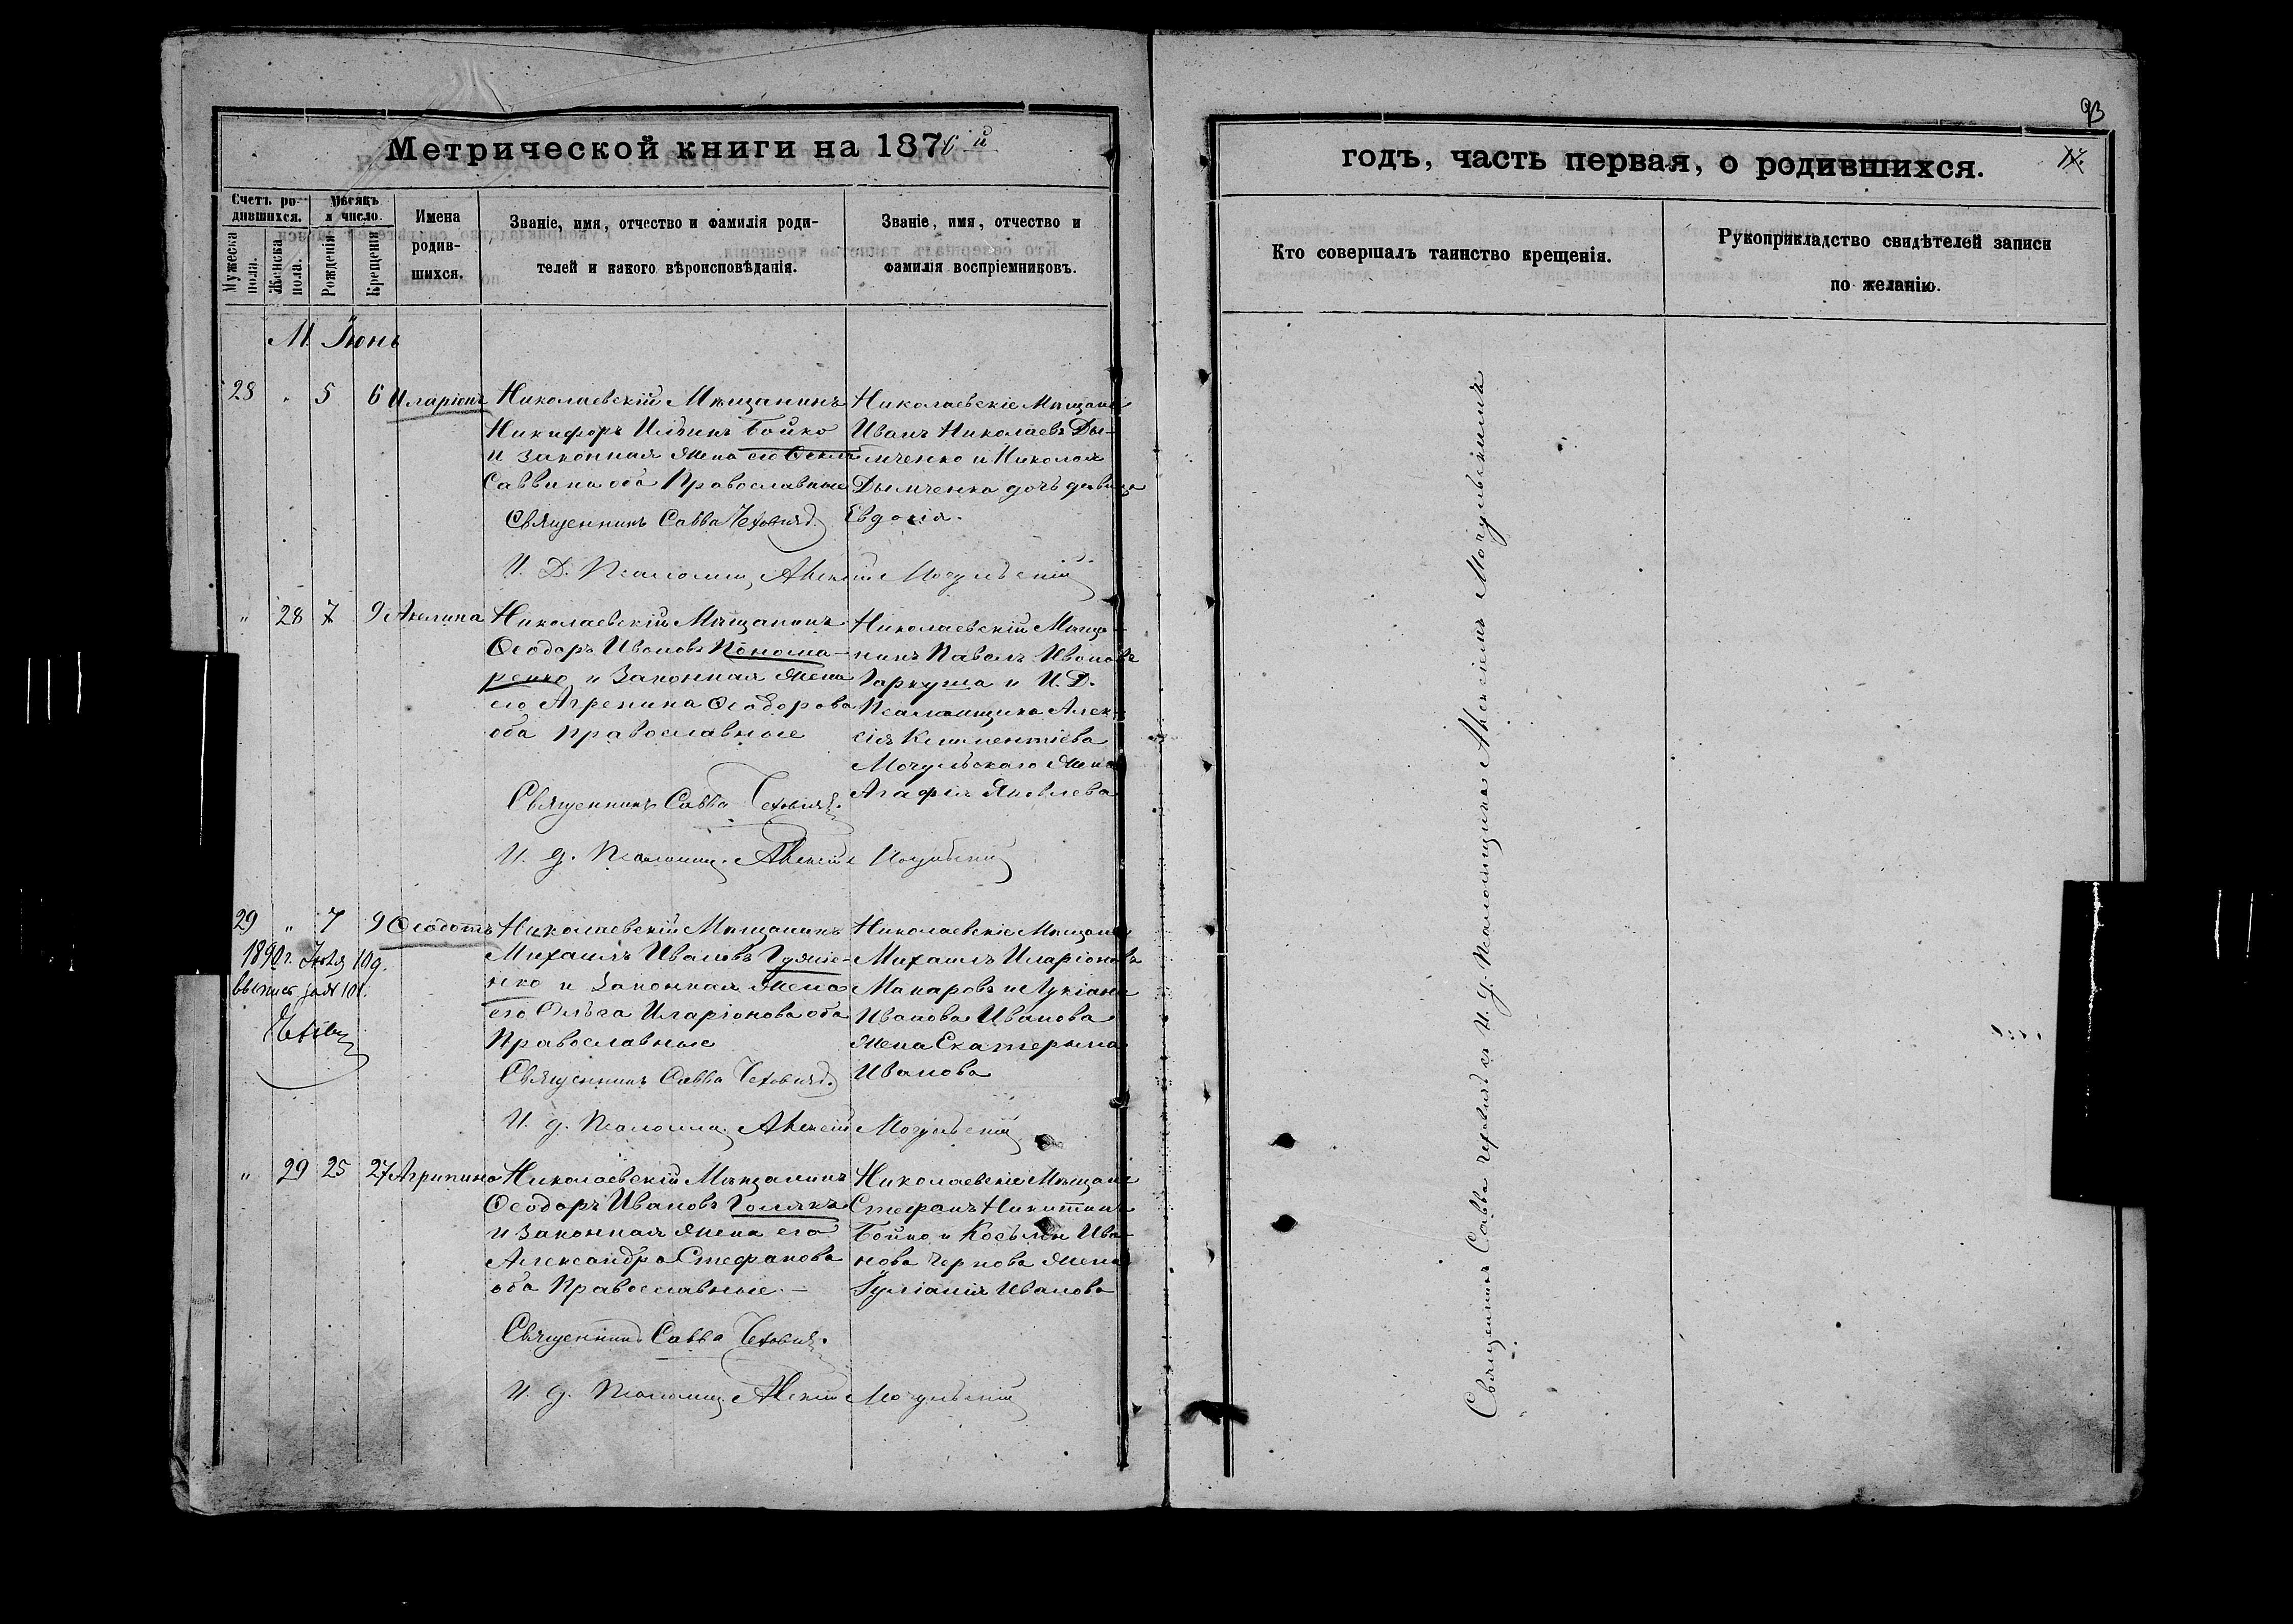 Метрической книги на 1876й
Счетъ родившихся.
Мужеска пола.
Женска пола.
Мѣсяцъ и число.
Рожденія
Крещенія
Имена родившихся.
Званіе, имя, отчество и фамилія родителей и какого вѣроисповѣданія.
Званіе, имя, отчество и фамилія воспріемниковъ.
М. Іюнь
28 „ 5 6 Иларіонъ
Николаевскій Мѣщанинъ
Никифоръ Ильинъ Бойко
и законная жена его Ѳекла
Саввина оба Православные
Николаевскіе Мѣщане
Иванъ Николаевъ Ды-
мченко и Николая
Дымченка дочь девица
Евдокія.
Священникъ Савва
И. Д. Псаломщ. Алексій Мочульскій
„ 28 7 9 Акилина
Николаевскій Мѣщанинъ
Ѳеодоръ Ивановъ Понома-
ренко и законная жена
его Агрепина Ѳеодорова
оба православные
Николаевскій Мѣща-
нинъ Павелъ Ивановъ
Гаркуша и И. Д.
Псаломщика Алек-
сія Климентіева
Мочульскаго жена
Агафія Яковлева
Священникъ Савва
И. д. Псаломщ. Алексій Мочульскій
29 „ 7 9 Ѳеодотъ
1890 г. Іюля 10 д.
Николаевскій Мѣщанинъ
Михаилъ Ивановъ
нко и законная жена
его Ольга Иларіонова оба
Православные
Николаевскіе Мѣщане
Михаилъ Иларіоновъ
Макаровъ и Лукіана
Иванова Иванова
жена Екатерина
Иванова
Священникъ Савва
И. д. Псаломщ. Алексій Мочульскій
„ 29 25 27 Агрипина
Николаевскій Мѣщанинъ
Ѳеодоръ Ивановъ Голякъ
и законная жена его
Александра Стефанова
оба Православные.—
Николаевскіе Мѣщане
Стефанъ Никитинъ
Бойко и Косьмы Ива-
нова Чернова жена
Іуліанія Иванова
Священникъ Савва
И. д. Псаломщ. Алексій Мочульскій
93
годъ, часть первая, о родившихся.
Кто совершалъ таинство крещенія.
Рукоприкладство свидѣтелей записи по желанію.
Священникъ Савва съ И. д. Псаломщика Алексіемъ Мочульскимъ